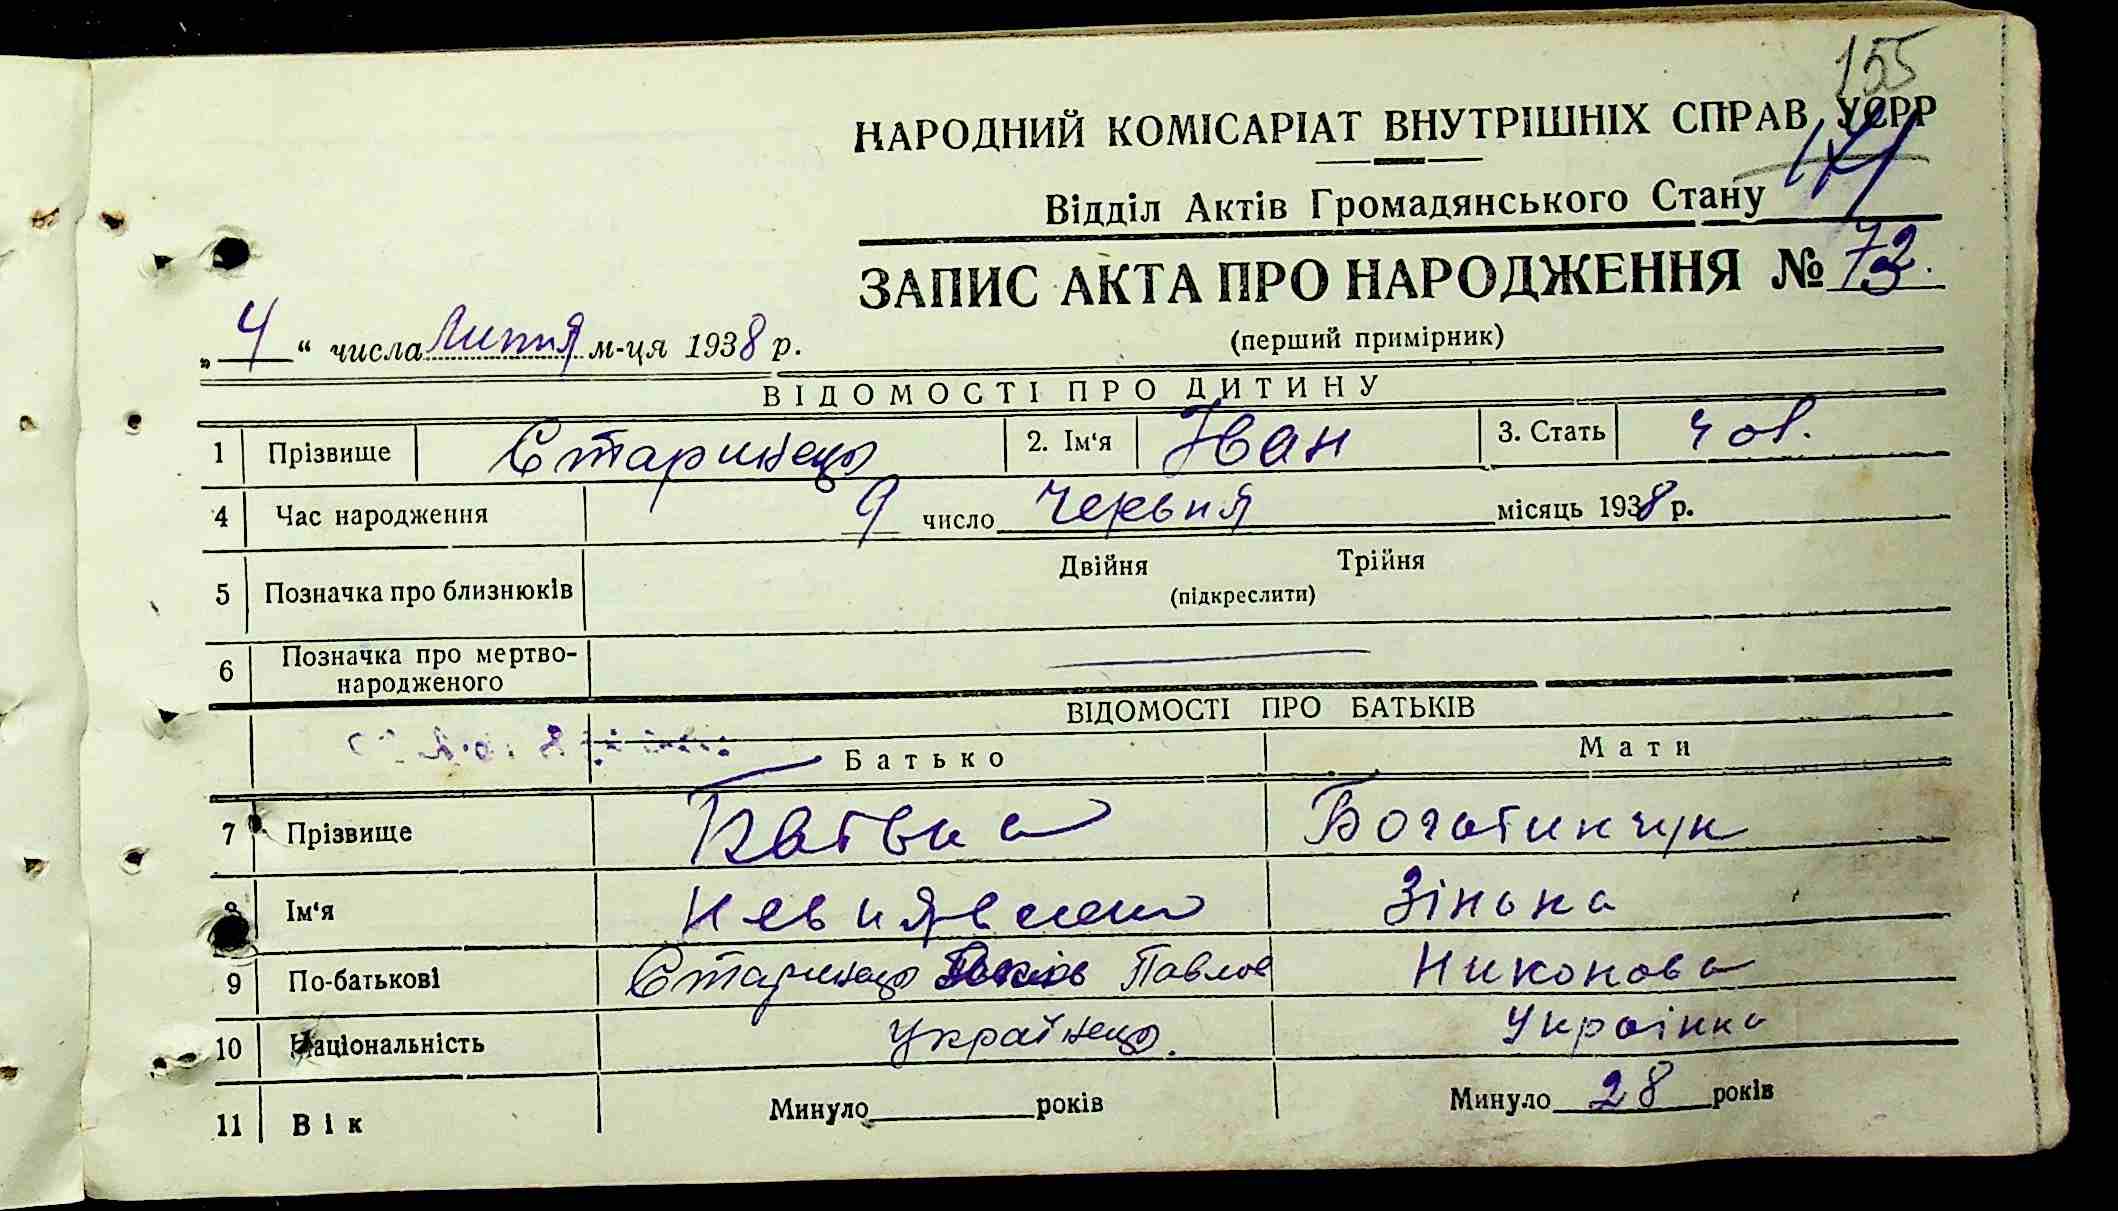 155
НАРОДНИЙ КОМІСАРІАТ ВНУТРІШНІХ СПРАВ УСРР
Відділ Актів Громадянського Стану
ЗАПИС АКТА ПРО НАРОДЖЕННЯ № 72.
„4“ числа Липня м-ця 1938 р.
(перший примірник)
ВІДОМОСТІ ПРО ДИТИНУ
1 Прізвище Старинець 2. Ім‘я Іван 3. Стать чол.
4 Час народження 9 число Червня місяць 1938 р.
5 Позначка про близнюків Двійня Трійня
(підкреслити)
6 Позначка про мертво-
народженого
ВІДОМОСТІ ПРО БАТЬКІВ
Батько Мати
7 Прізвище Батька Богатинчук
8 Ім‘я невиявлено Зінька
9 По-батькові Старинець Павлов Никонова
10 Національність Українець. Українка
11 Вік Минуло років Минуло 28 років